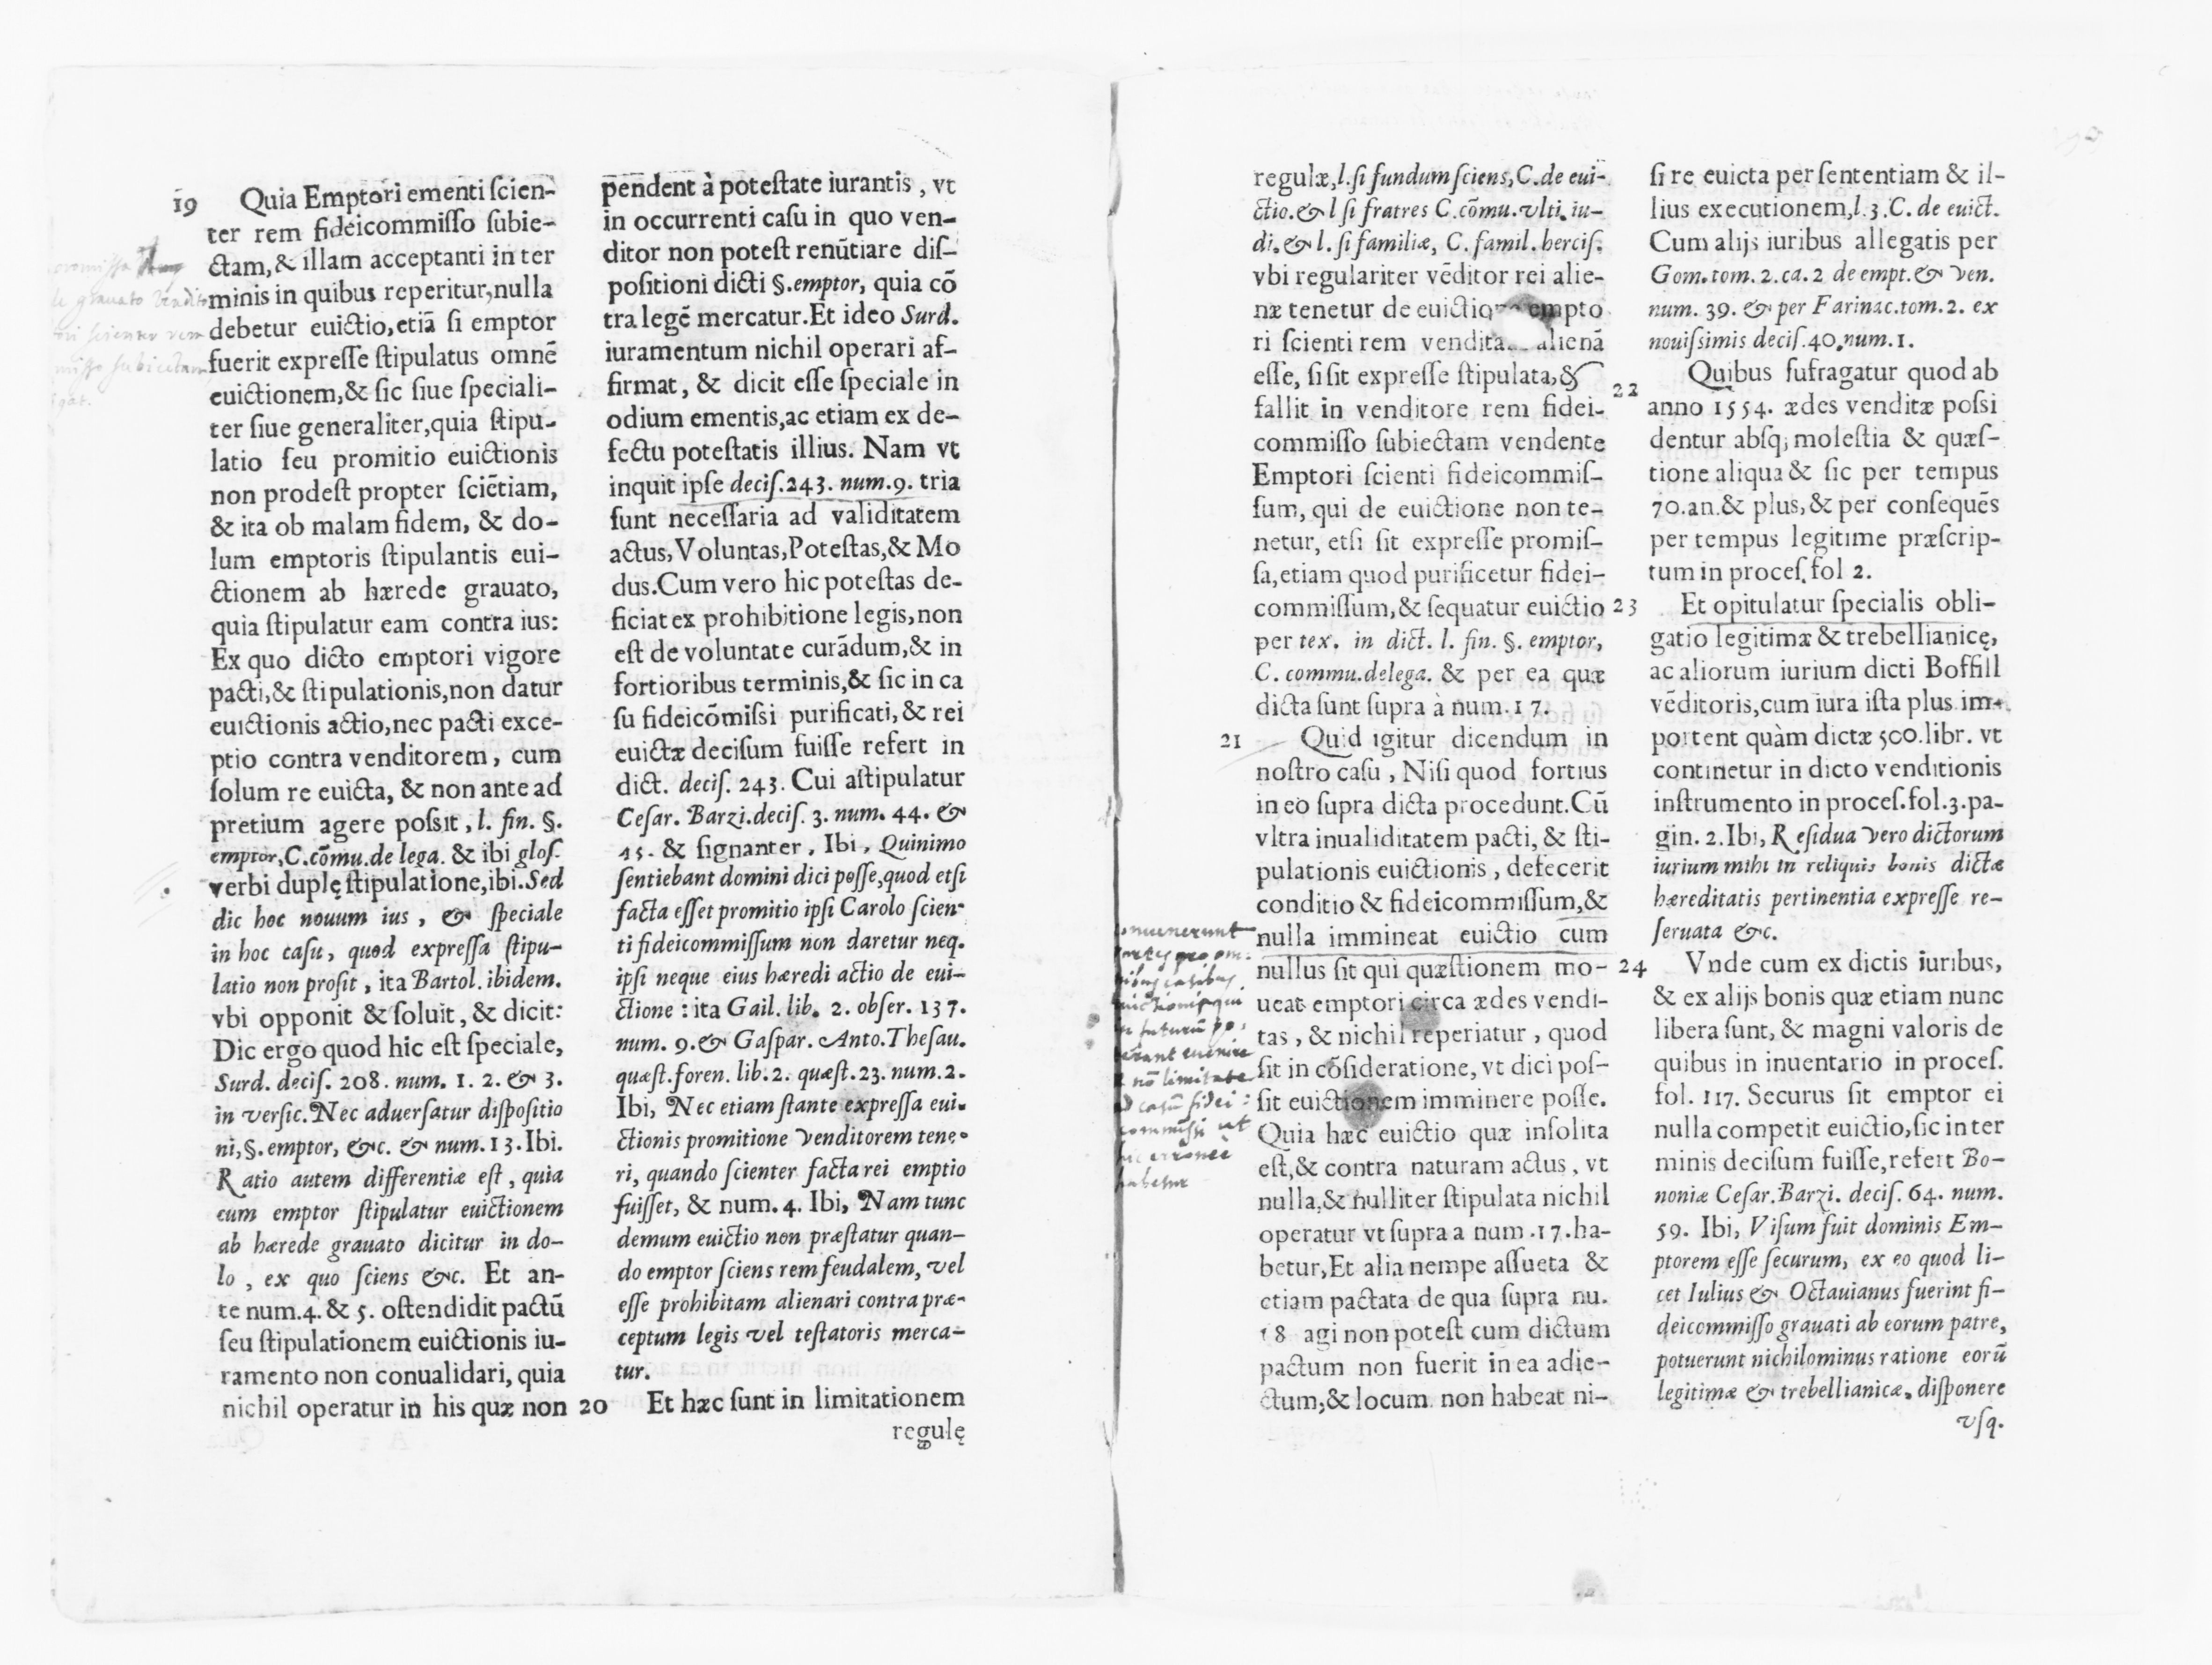 19 Quia Emptori ementi ſcien-
ter rem fideicommiſſo ſubie-
ctam, & illam acceptanti in ter
minis in quibus reperitur, nulla
debetur euictio, etiã ſi emptor
fuerit expreſſe ſtipulatus omnẽ
euictionem, & ſic ſiue ſpeciali-
ter ſiue generaliter, quia ſtipu-
latio ſeu promitio euictionis
non prodeſt propter ſciẽtiam,
& ita ob malam fidem, & do-
lum emptoris ſtipulantis eui-
ctionem ab hærede grauato,
quia ſtipulatur eam contra ius:
Ex quo dicto emptori vigore
pacti, & ſtipulationis, non datur
euictionis actio, nec pacti exce-
ptio contra venditorem, cum
ſolum re euicta, & non ante ad
pretium agere poſsit, l. fin. §.
emptor, C. cõmu. de lega. & ibi gloſ.
verbi duplę ſtipulatione, ibi. Sed
dic hoc nouum ius, & ſpeciale
in hoc caſu, quod expreſſa ſtipu-
latio non profit, ita Bartol. ibidem.
vbi opponit & ſoluit, & dicit:
Dic ergo quod hic eſt ſpeciale,
Surd. deciſ. 208. num. 1. 2. & 3.
in verſic. Nec aduerſatur diſpoſitio
ni, §. emptor, &c. & num. 13. Ibi.
Ratio autem differentiæ eſt, quia
cum emptor ſtipulatur euictionem
ab hærede grauato dicitur in do-
lo, ex quo ſciens &c. Et an-
te num. 4. & 5. oſtendidit pactũ
ſeu ſtipulationem euictionis iu-
ramento non conualidari, quia
nichil operatur in his quæ non
pendent à poteſtate iurantis, vt
in occurrenti caſu in quo ven-
ditor non poteſt renũtiare diſ-
poſitioni dicti §. emptor, quia cõ
tra legẽ mercatur. Et ideo Surd.
iuramentum nichil operari af-
firmat, & dicit eſſe ſpeciale in
odium ementis, ac etiam ex de-
fectu poteſtatis illius. Nam vt
inquit ipſe deciſ. 243. num. 9. tria
ſunt neceſſaria ad validitatem
actus, Voluntas, Poteſtas, & Mo
dus. Cum vero hic poteſtas de-
ficiat ex prohibitione legis, non
eſt de voluntate curãdum, & in
fortioribus terminis, & ſic in ca
ſu fideicõmiſsi purificati, & rei
euictæ deciſum fuiſſe refert in
dict. deciſ. 243. Cui aſtipulatur
Ceſar. Barzi. deciſ. 3. num. 44. &
45. & ſignanter, Ibi, Quinimo
ſentiebant domini dici poſſe, quod etſi
facta eſſet promitio ipſi Carolo ſcien-
ti fideicommiſſum non daretur neq.
ipſi neque eius hæredi actio de eui-
ctione: ita Gail. lib. 2. obſer. 137.
num. 9. & Gaſpar. Anto. Theſau.
quæſt. foren. lib. 2. quæſt. 23. num. 2.
Ibi, Nec etiam ſtante expreſſa eui-
ctionis promitione venditorem tene-
ri, quando ſcienter facta rei emptio
fuiſſet, & num. 4. Ibi, Nam tunc
demum euictio non præſtatur quan-
do emptor ſciens rem feudalem, vel
eſſe prohibitam alienari contra præ-
ceptum legis vel teſtatoris merca-
tur.
20 Et hæc ſunt in limitationem
regulę
regulæ, l. ſi fundum ſciens, C. de eui-
ctio. & l ſi fratres C. cõmu. vlti. iu-
di. & l. ſi familiæ, C. famil. herciſ.
vbi regulariter vẽditor rei alie-
næ tenetur de euictio empto
ri ſcienti rem vendita alienã
eſſe, ſi ſit expreſſe ſtipulata, &
fallit in venditore rem fidei-
commiſſo ſubiectam vendente
Emptori ſcienti fideicommiſ-
ſum, qui de euictione non te-
netur, etſi ſit expreſſe promiſ-
ſa, etiam quod purificetur fidei-
commiſſum, & ſequatur euictio
per tex. in dict. l. fin. §. emptor,
C. commu. de lega. & per ea quæ
dicta ſunt ſupra à num. 17.
21 Quid igitur dicendum in
noſtro caſu, Niſi quod fortius
in eo ſupra dicta procedunt. Cũ
vltra inualiditatem pacti, & ſti-
pulationis euictionis, defecerit
conditio & fideicommiſſum, &
nulla immineat euictio cum
nullus ſit qui quæſtionem mo-
ueat emptori circa ædes vendi-
tas, & nichil reperiatur, quod
ſit in cõſideratione, vt dici poſ-
ſit euictionem imminere poſſe.
Quia hæc euictio quæ inſolita
eſt, & contra naturam actus, vt
nulla, & nulliter ſtipulata nichil
operatur vt ſupra a num. 17. ha-
betur, Et alia nempe aſſueta &
etiam pactata de qua ſupra nu.
18 agi non poteſt cum dictum
pactum non fuerit in ea adie-
ctum, & locum non habeat ni-
ſi re euicta per ſententiam & il-
lius executionem, l. 3. C. de euict.
Cum alijs iuribus allegatis per
Gom. tom. 2. ca. 2 de empt. & ven.
num. 39. & per Farinac. tom. 2. ex
nouiſsimis deciſ. 40. num. 1.
22 Quibus ſufragatur quod ab
anno 1554. ædes venditæ poſsi
dentur abſq; moleſtia & quæſ-
tione aliqua & ſic per tempus
70. an. & plus, & per conſequẽs
per tempus legitime præſcrip-
tum in proceſ. fol 2.
23 Et opitulatur ſpecialis obli-
gatio legitimæ & trebellianicę,
ac aliorum iurium dicti Boffill
vẽditoris, cum iura iſta plus im-
portent quàm dictæ 500. libr. vt
continetur in dicto venditionis
inſtrumento in proceſ. fol. 3. pa-
gin. 2. Ibi, Reſidua vero dictorum
iurium mihi in reliquis bonis dictæ
hæreditatis pertinentia expreſſe re-
ſeruata &c.
24 Vnde cum ex dictis iuribus,
& ex alijs bonis quæ etiam nunc
libera ſunt, & magni valoris de
quibus in inuentario in proceſ.
fol. 117. Securus ſit emptor ei
nulla competit euictio, ſic in ter
minis deciſum fuiſſe, refert Bo-
noniæ Ceſar. Barzi. deciſ. 64. num.
59. Ibi, Viſum fuit dominis Em-
ptorem eſſe ſecurum, ex eo quod li-
cet Iulius & Octauianus fuerint fi-
deicommiſſo grauati ab eorum patre,
potuerunt nichilominus ratione eorũ
legitimæ & trebellianicæ, diſponere
vſq.